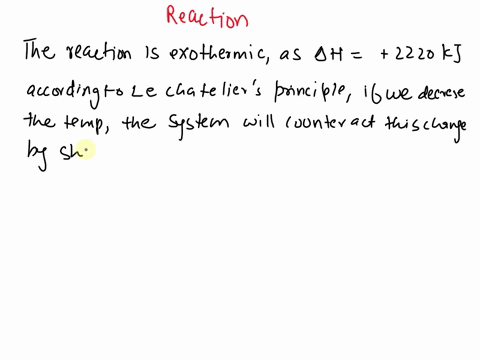 Reaction
The reaction is exothermic, as ΔH = +2220 kJ
according to Le chatelier's principle, if we decrese
the temp, the system will counter act this change
by sh